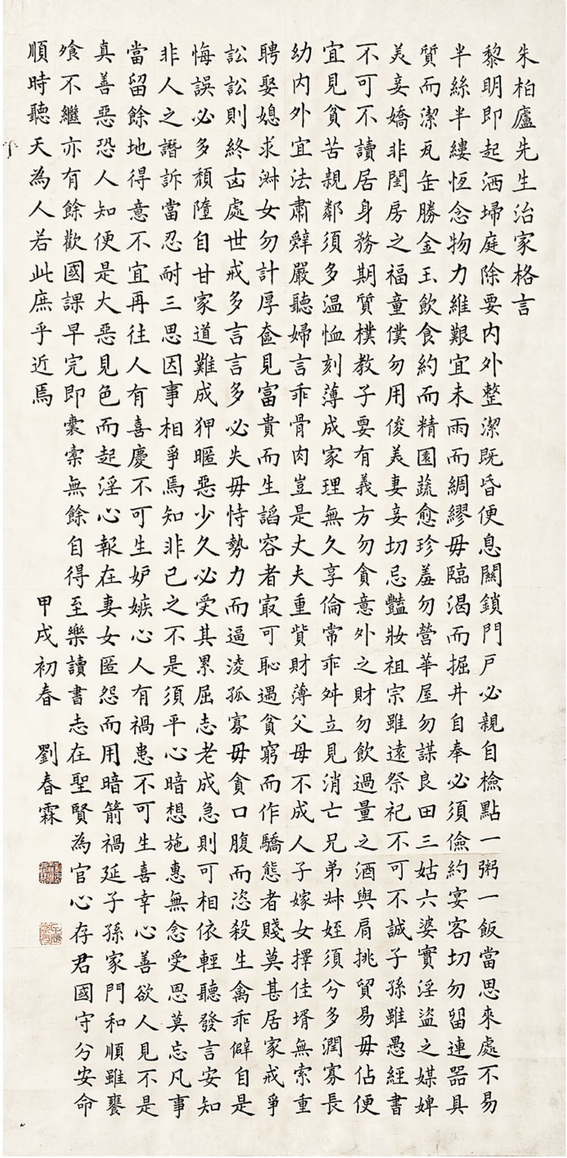 朱柏廬先生治家格言
黎明即起洒埽庭除要內外整潔既昏便息關鎖門戶必親自檢點一粥一飯當思來處不易
半絲半縷恆念物力維艱宜未雨而綢繆毋臨渴而掘井自奉必須儉約宴客切勿留連器具
質而潔瓦缶勝金玉飲食約而精園蔬愈珍羞勿營華屋勿謀良田三姑六婆實淫盜之媒婢
美妾嬌非閨房之福童僕勿用俊美妻妾切忌豔妝祖宗雖遠祭祀不可不誠子孫雖愚經書
不可不讀居身務期質樸教子要有義方勿貪意外之財勿飲過量之酒與肩挑貿易毋佔便
宜見貧苦親鄰須多溫恤刻薄成家理無久享倫常乖舛立見消亡兄弟叔姪須分多潤寡長
幼內外宜法肅辭嚴聽婦言乖骨肉豈是丈夫重貲財薄父母不成人子嫁女擇佳壻無索重
聘娶媳求淑女勿計厚奩見富貴而生諂容者最可恥遇貧窮而作驕態者賤莫甚居家戒爭
訟訟則終凶處世戒多言言多必失毋恃勢力而逼淩孤寡毋貪口腹而恣殺生禽乖僻自是
悔誤必多頹墮自甘家道難成狎暱惡少久必受其累屈志老成急則可相依輕聽發言安知
非人之譖訴當忍耐三思因事相爭焉知非己之不是須平心暗想施惠無念受恩莫忘凡事
當留餘地得意不宜再往人有喜慶不可生妒嫉心人有禍患不可生喜幸心善欲人見不是
真善惡恐人知便是大惡見色而起淫心報在妻女匿怨而用暗箭禍延子孫家門和順雖饔
飧不繼亦有餘歡國課早完即囊橐無餘自得至樂讀書志在聖賢為官心存君國守分安命
順時聽天為人若此庶乎近焉
甲戌初春 劉春霖